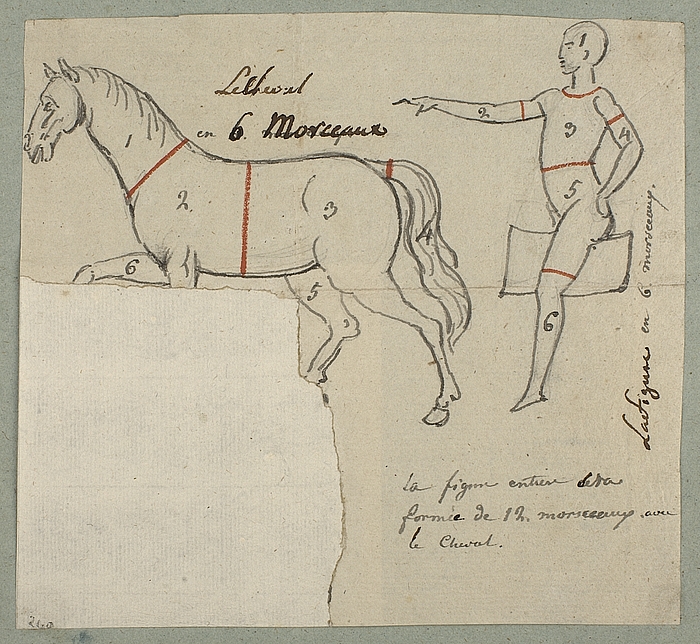 Le Cheval
en 6 Morceaux
1
2
3
4
5
6
1
2
3
4
5
6
La figure en 6 morceaux.
La figure entiere sera
formée de 12. morseeaux avec
le Cheval.
240